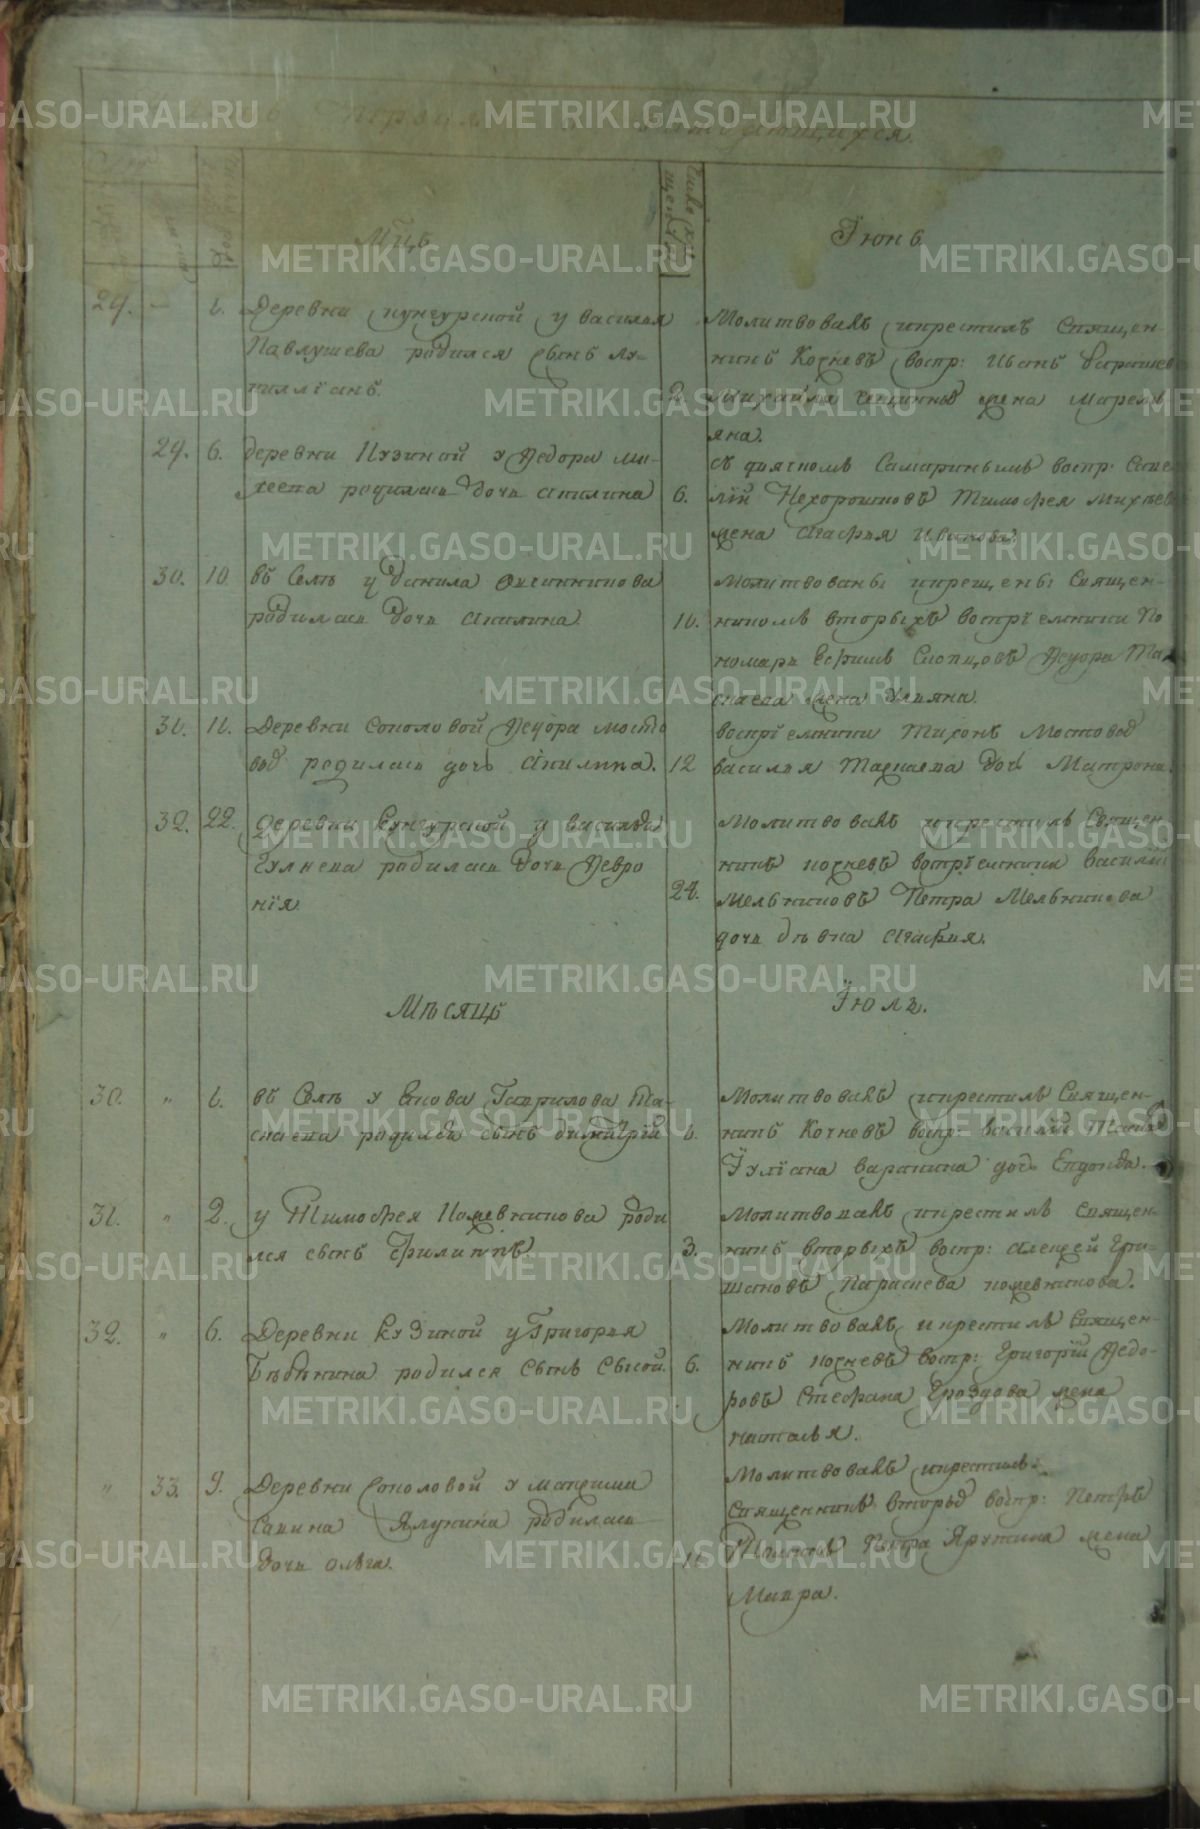 METRIKI.GASO-URAL.RU
Мцъ
Їюнь
29. — 1. Деревни Кунгурской у василья
Павлушева родился сынъ
Молитвовалъ и крестилъ Священ-
никъ Кочневъ воспр: Иванъ
2. Михайла жена
29. 6. деревни Кузиной у Ѳедора Ми-
хеева родилась дочь Акилина
6. съ дьячкомъ Самаринымъ воспр.
Нехорошковъ Тимоѳея Михѣев
жена Агафья Иванова.
30. 10. въ Селѣ у Данила Овчинникова
родилась дочь Акилина
10. Молитвованы и крещены Священ-
никомъ вторыхъ воспрїемники По
номарь Ефимъ Слопцовъ Ѳедора Та
скаева жена Ульяна
31. 11. Деревни Соколовой Ѳедора Мосто
выд родилась дочь Акилина.
12 воспрїемники Тихонъ Мостовыд
василья Таскаева дочь Матрона.
32. 22. Деревни Кунгурской у василья
Гулнева родилась дочь Ѳевро
нїя
24. Молитвовалъ и крестилъ Священ-
никъ Кочневъ воспрїемники василїй
Мельниковъ Петра Мельникова
дочь дѣвка Агафья.
Мѣсяцъ
Їюль.
30. " 1. въ Селѣ у Якова Гаврилова Та-
скаева родилсь сынъ димитрїй
1. Молитвовалъ и крестилъ Священ-
никъ Кочневъ воспр: василїй
Їулїана дочь
31. " 2. у Тимоѳея Кожевникова роди
лся сынъ Филиппъ.
3. Молитвовалъ и крестилъ Священ-
никъ вторыхъ воспр: Алексей Гри-
шановъ Параскева Кожевникова.
32. " 6. Деревни Кузиной у Григорья
Бѣдѣнина родился сынъ Сысой.
6. Молитвовалъ и крестилъ Священ-
никъ Кочневъ воспр: Григорїй Ѳедо-
ровъ Стефана Гроздова жена
наталья.
" 33. 9. Деревни Соколовой у максима
Савина Ялунина родилась
дочь ольга.
11. Молитвовалъ и крестилъ
Священникъ вторыд воспр: Петръ
Петра Ярутина жена
Мавра.